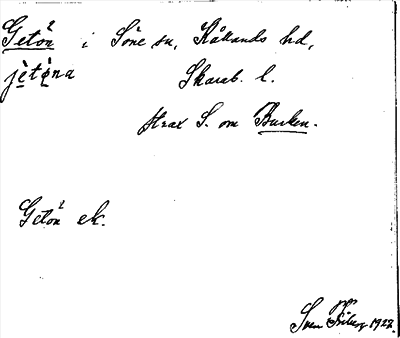 Getön² i Söne sn, Kållands hd,
jètö̀na Skarab. l.
strax S. om Burken.
Getön² ek.
Sven 1927.